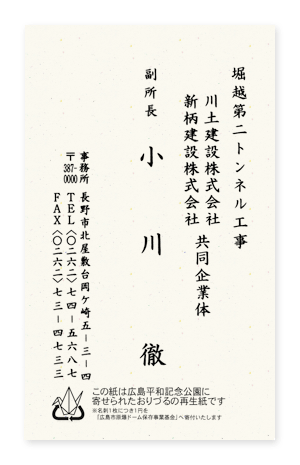 堀越第二トンネル工事
川土建設株式会社
新柄建設株式会社
共同企業体
副所長
小川 徹
事務所 長野市北屋敷台岡ケ崎五−三−四
〒387-0000
TEL〈〇二六二〉七四−五六八七
FAX〈〇二六二〉七三−四七三三
この紙は広島平和記念公園に
寄せられたおりづるの再生紙です
※名刺1枚につき1円を
「広島市原爆ドーム保存事業基金」へ寄付いたします